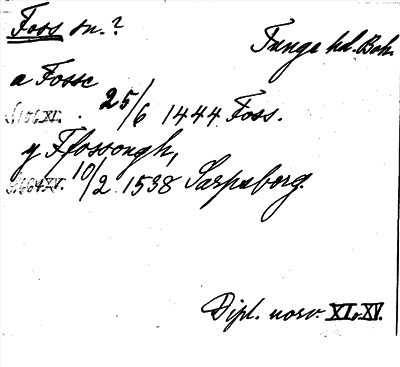 Foss sn.?
Tunge hd. Boh.
a Fosse
s. 156 XI. 25/6 1444 Foss.
y Ffossongh,
s. 664 XV. 10/2 1538 Sarpsborg.
Dipl. norv. XI. XV.